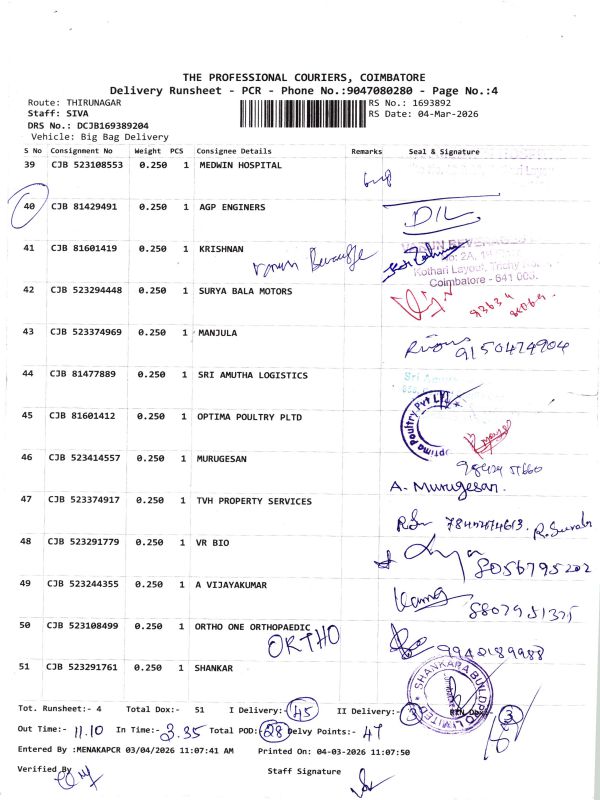 THE PROFESSIONAL COURIERS, COIMBATORE
Delivery Runsheet - PCR - Phone No.:9047080280 - Page No.:4
Route: THIRUNAGAR
RS No.: 1693892
Staff: SIVA
RS Date: 04-Mar-2026
DRS No.: DCJB169389204
Vehicle: Big Bag Delivery
S No Consignment No Weight PCS Consignee Details Remarks Seal & Signature
39 CJB 523108553 0.250 1 MEDWIN HOSPITAL
40 CJB 81429491 0.250 1 AGP ENGINERS DIL
41 CJB 81601419 0.250 1 KRISHNAN
Kothari Layout, Trichy
Coimbatore - 641 005.
42 CJB 523294448 0.250 1 SURYA BALA MOTORS
43 CJB 523374969 0.250 1 MANJULA
9150474904
44 CJB 81477889 0.250 1 SRI AMUTHA LOGISTICS
Sri
45 CJB 81601412 0.250 1 OPTIMA POULTRY PLTD
Optima Poultry Pvt Ltd
46 CJB 523414557 0.250 1 MURUGESAN
A. Murugesan.
47 CJB 523374917 0.250 1 TVH PROPERTY SERVICES
48 CJB 523291779 0.250 1 VR BIO
8056795202
49 CJB 523244355 0.250 1 A VIJAYAKUMAR
50 CJB 523108499 0.250 1 ORTHO ONE ORTHOPAEDIC
ORTHO
9940189988
51 CJB 523291761 0.250 1 SHANKAR
SHANKARA BUILDPRO LIMITED
Tot. Runsheet:- 4 Total Dox:- 51 I Delivery:- 45 II Delivery:- 3 3
Out Time:- 11.10 In Time:- 3.35 Total POD:- 28 Delvy Points:- 47
Entered By :MENAKAPCR 03/04/2026 11:07:41 AM Printed On: 04-03-2026 11:07:50
Verified By
Staff Signature